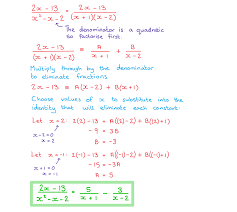 2x - 13 / x² - x - 2 = 2x - 13 / (x + 1)(x - 2)
The denominator is a quadratic
so factorise first.
2x - 13 / (x + 1)(x - 2) = A / x + 1 + B / x - 2
Multiply through by the denominator
to eliminate fractions
2x - 13 = A(x - 2) + B(x + 1)
Choose values of x to substitute into the
identity that will eliminate each constant.
Let x = 2: 2(2) - 13 = A((2) - 2) + B((2) + 1)
x - 2 = 0
x = 2
-9 = 3B
B = -3
Let x = -1: 2(-1) - 13 = A((-1) - 2) + B((-1) + 1)
x + 1 = 0
x = -1
-15 = -3A
A = 5
2x - 13 / x² - x - 2 = 5 / x + 1 - 3 / x - 2